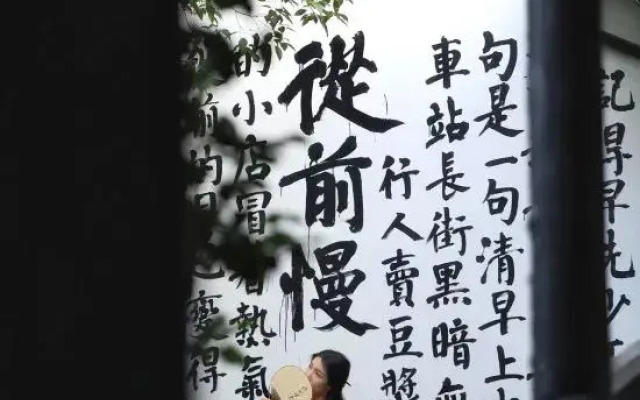 記得早先少
句是一句清早上
車站長街黑暗無
行人賣豆漿
從前慢
的小店冒着熱氣
前的日色變得